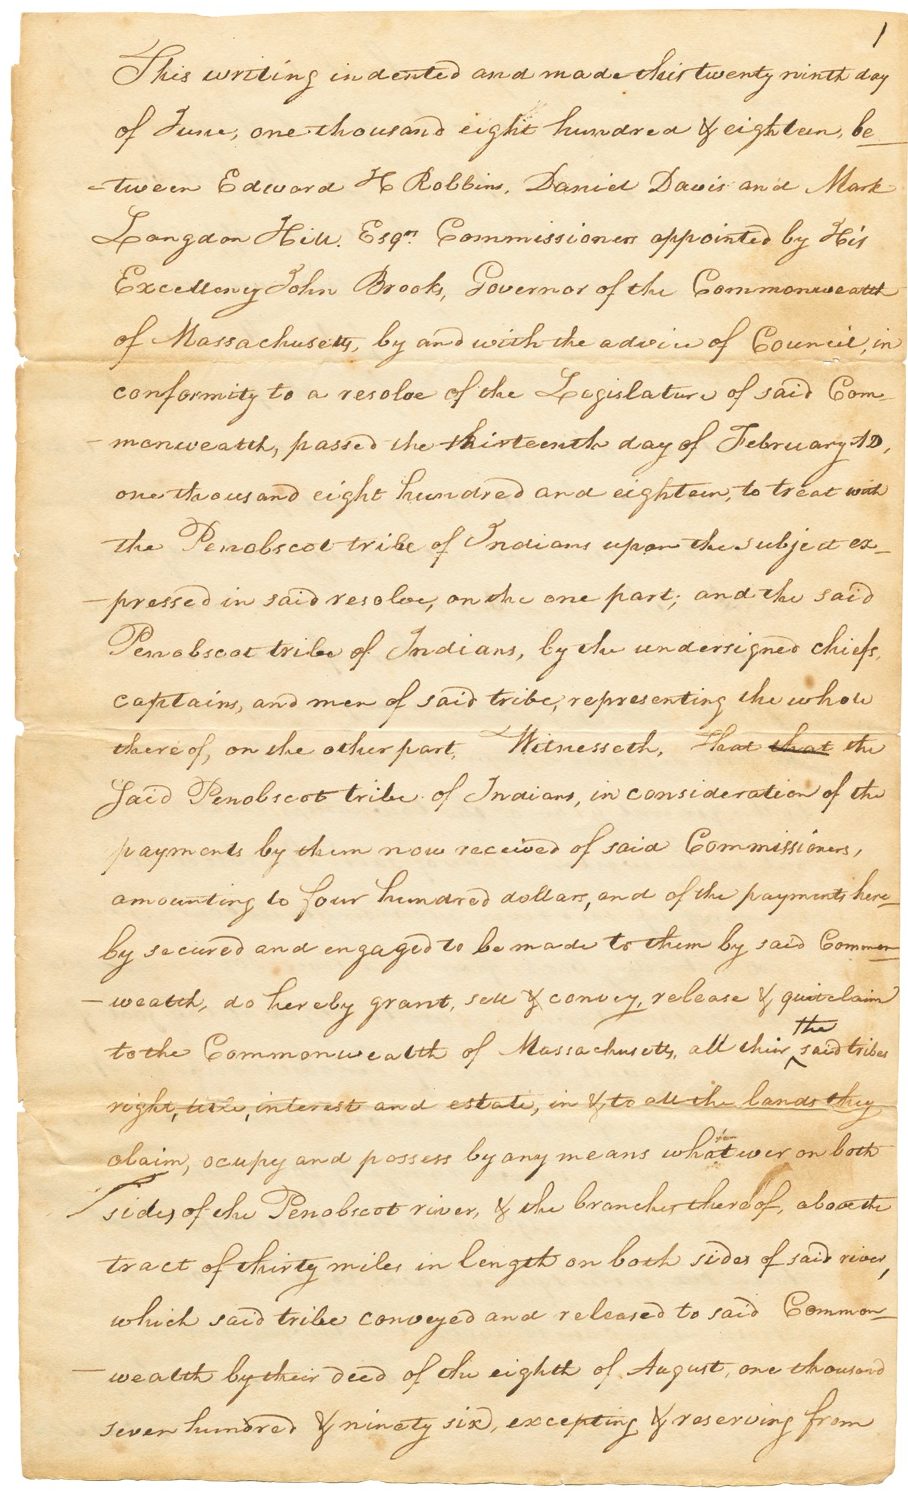 1
This writing indented and made this twenty ninth day
of June, one thousand eight hundred & eighteen, be-
-tween Edward H Robbins, Daniel Davis and Mark
Langdon Hill. Esqrs Commissioners appointed by His
Excellency John Brooks, Governor of the Commonwealth
of Massachusetts, by and with the advice of Council, in
conformity to a resolve of the Legislature of said Com-
-monwealth, passed the thirteenth day of February AD,
one thousand eight hundred and eighteen, to treat with
the Penobscot tribe of Indians upon the subject ex-
-pressed in said resolve, on the one part; and the said
Penobscot tribe of Indians, by the undersigned chiefs,
captains, and men of said tribe, representing the whole
thereof, on the other part, Witnesseth, that that the
Said Penobscot tribe of Indians, in consideration of the
payments by them now received of said Commissioners,
amounting to four hundred dollars, and of the payments here-
by secured and engaged to be made to them by said Common-
-wealth, do hereby grant, sell & convey, release & quitclaim
to the Commonwealth of Massachusetts, all their the said tribes
right, title, interest and estate, in & to all the lands they
claim, ocupy and possess by any means whatever on both
sides of the Penobscot river, & the branches thereof, above the
tract of thirty miles in length on both sides of said river,
which said tribe conveyed and released to said Common-
-wealth by their deed of the eighth of August, one thousand
seven hundred & ninety six, excepting & reserving from